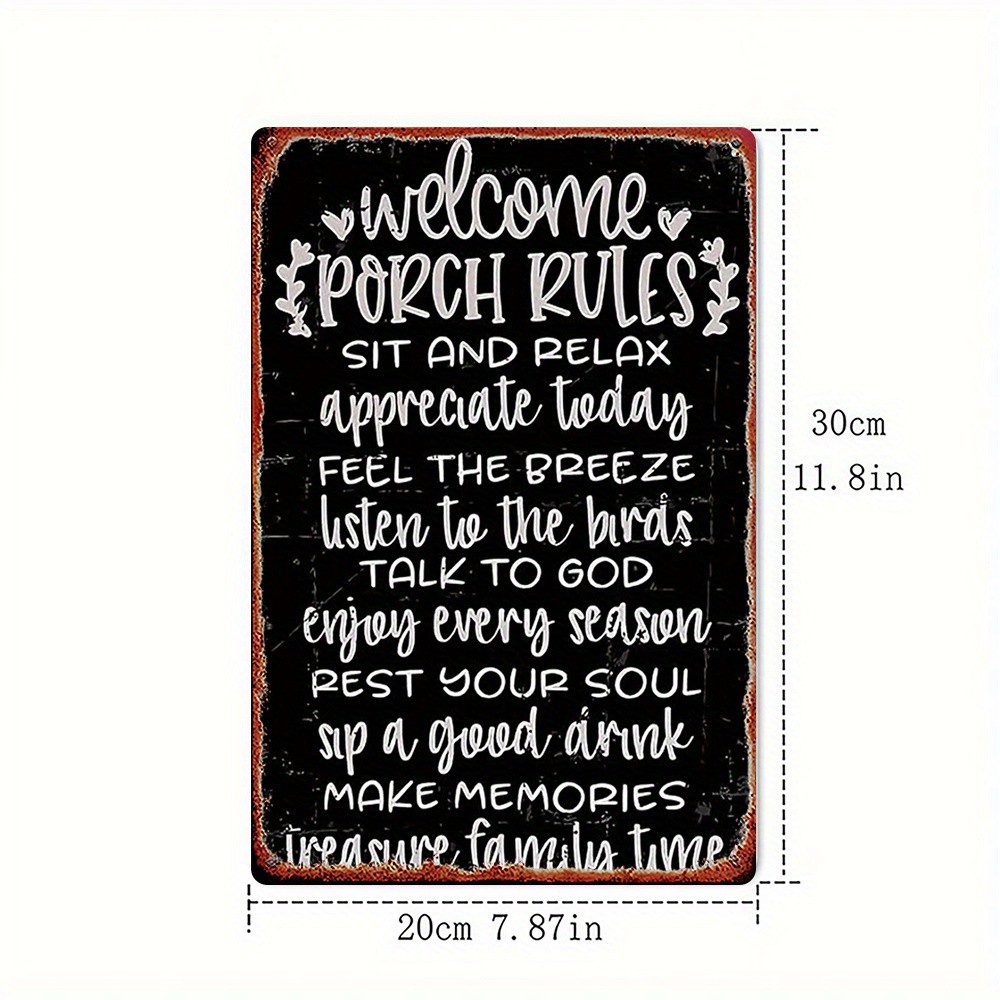 welcome
PORCH RULES
SIT AND RELAX
appreciate today
FEEL THE BREEZE
listen to the birds
TALK TO GOD
enjoy every season
REST YOUR SOUL
sip a good drink
MAKE MEMORIES
treasure family time
30cm
11.8in
20cm 7.87in